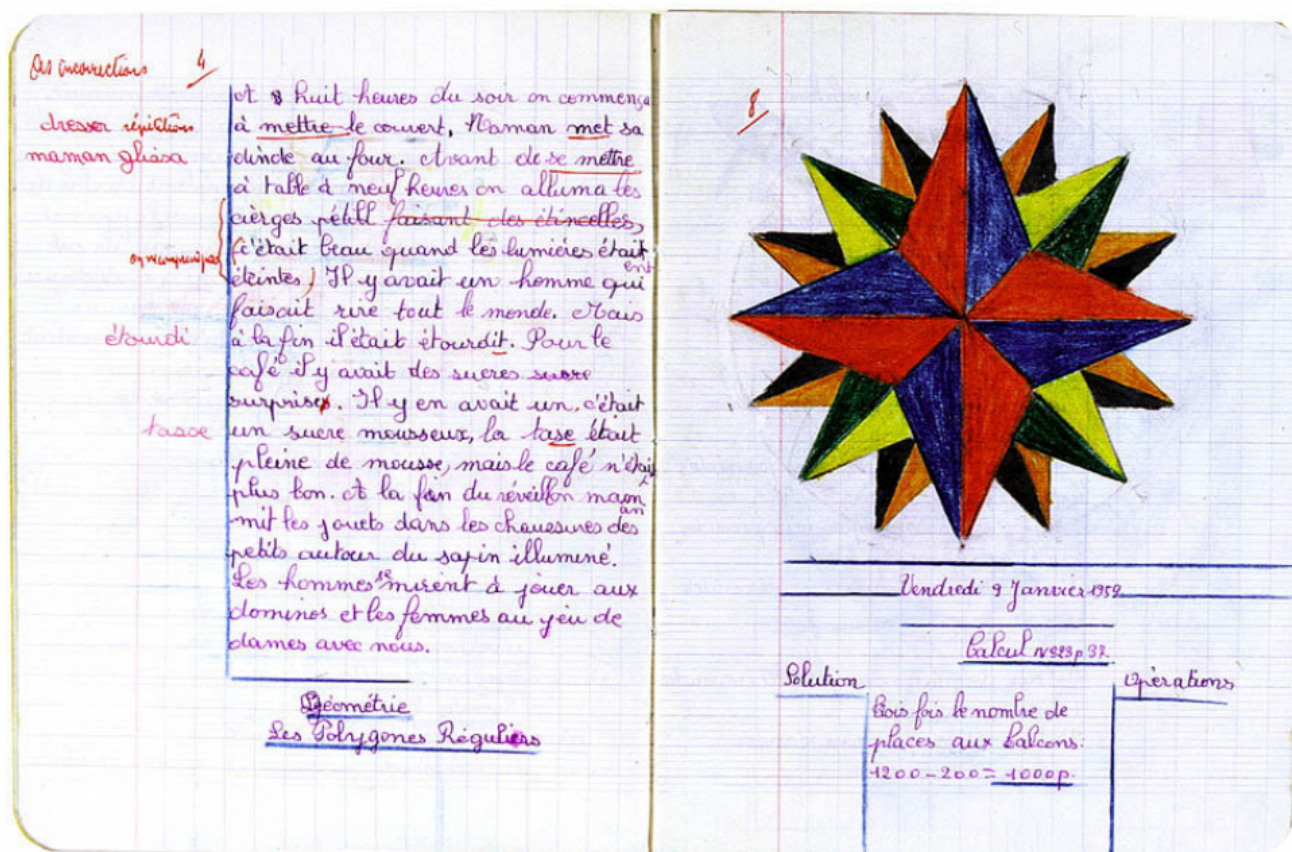 Des incorrections 4
A 8 huit heures du soir on commença
dresser répétitions
à mettre le couvert, Maman met sa
maman glissa
dinde au four. Avant de se mettre
à table à neuf heures on alluma les
cièrges pétill faisant des étincelles,
on ne comprend pas
(c'était beau quand les lumières était
ent
éteintes) Il y avait un homme qui
faisait rire tout le monde. Mais
étourdi
à la fin il était étourdit. Pour le
café il y avait des sucres sucre
surprises. Il y en avait un, c'était
tasse
un sucre mousseux, la tase était
pleine de mousse, mais le café n'était
plus bon. A la fin du réveillon maman
mit les jouets dans les chaussures des
petits autour du sapin illuminé.
Les hommes se mirent à jouer aux
dominos et les femmes au jeu de
dames avec nous.
Géométrie
Les Polygones Réguliers
8
Vendredi 9 Janvier 1959
Calcul N°323 p.97.
Solution
Opérations
Trois fois le nombre de
places aux balcons:
1200-200 = 1000p.